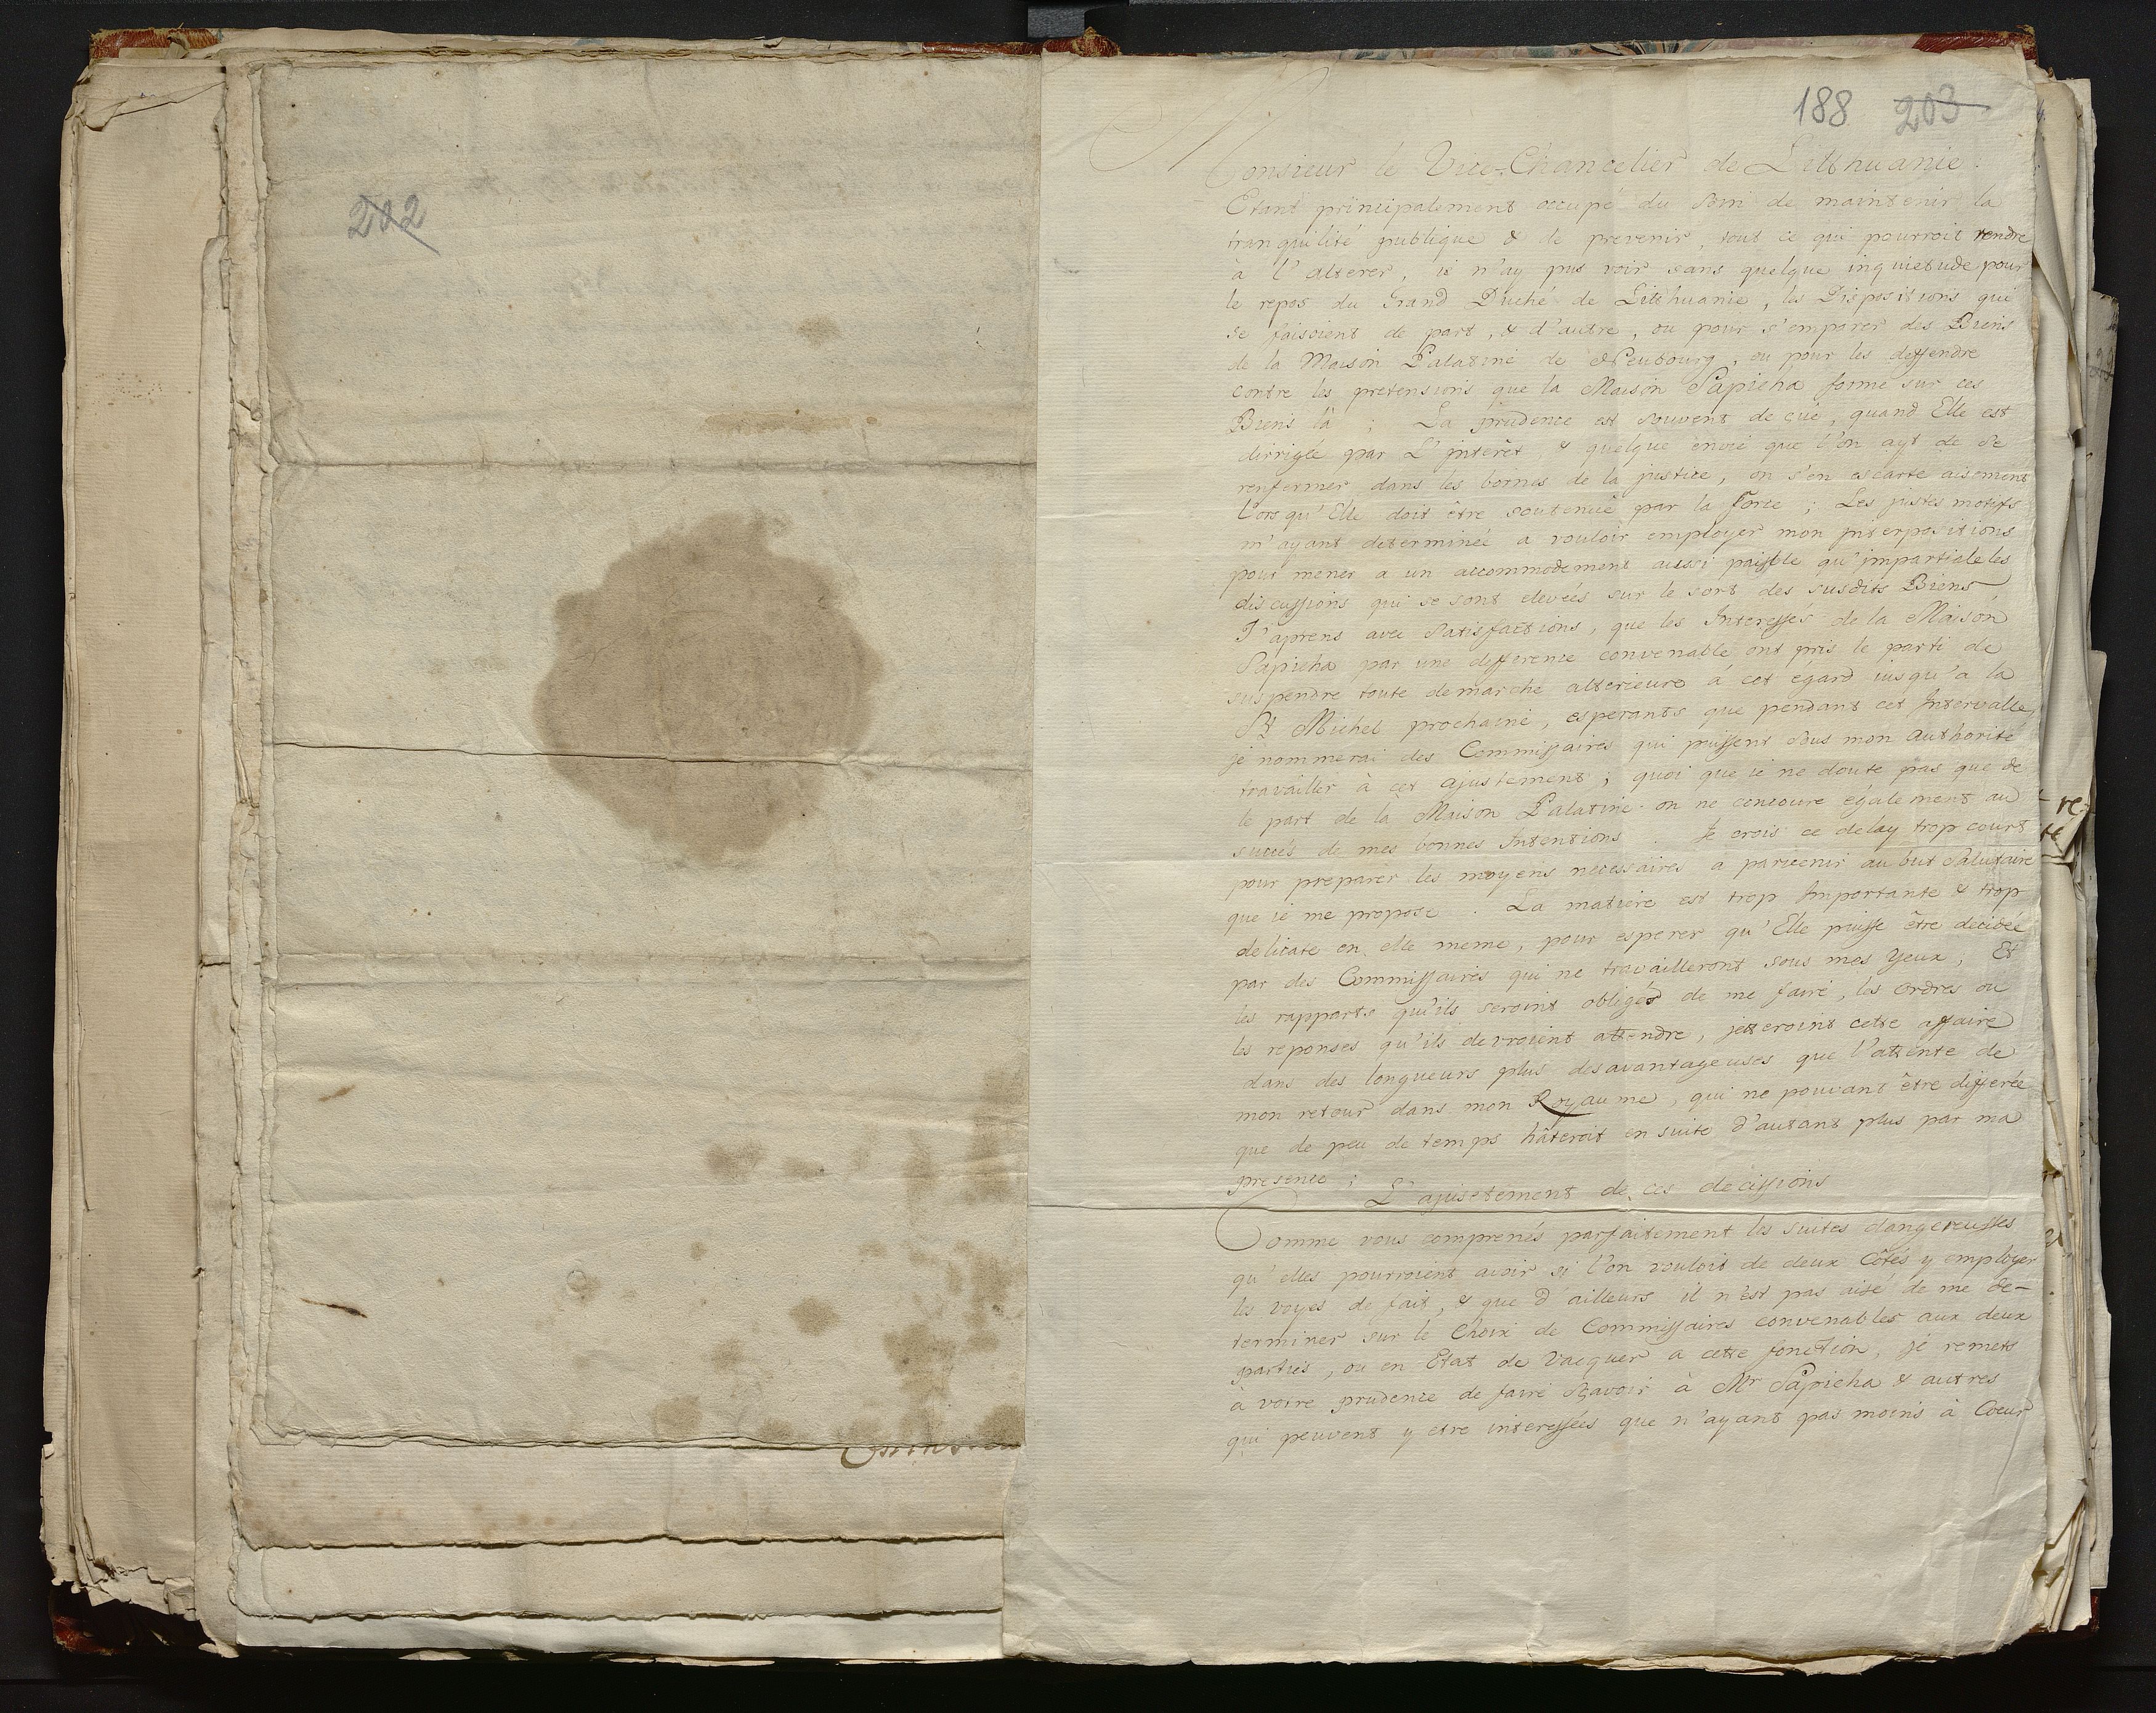 202
188 203
Monsieur le Vice-Chancelier de Lithuanie.
Etant principalement occupé du soin de maintenir la
tranquilité publique & de prevenir, tout ce qui pourroit tendre
à l'alterer, ie n'ay pus voir sans quelque inquietude pour
le repos du Grand Duché de Lithuanie, les Dispositions qui
se faisoient de part, & d'autre, ou pour s'emparer des Biens
de la Maison Palatine de Neubourg, ou pour les deffendre
contre les pretensions que la Maison Sapieha forme sur ces
Biens là; La prudence est souvent deçuë, quand Elle est
dirrigée par L'jnterêt & quelque envie que l'on ayt de se
renfermer dans les bornes de la justice, on s'en escarte aisement
Lorsqu'Elle doit être soutenuë par la force; Les justes motifs
m'ayant determinée a vouloir employer mon jnterpositions
pour mener a un accommodement aussi paisible qu'jmpartiale les
discussions qui se sont elevées sur le sort des susdits Biens
J'aprens avec satisfactions, que les Interessés de la Maison
Sapieha par une defference convenable ont pris le parti de
suspendre toute demarche alterieure à cet égard iusqu'a la
St Michel prochaine, esperants que pendant cet Intervalle,
je nommerai des Commissaires qui puissent sous mon authorité
travailler à cet ajustement; quoi que ie ne doute pas que de
le part de la Maison Palatine on ne concoure également au
succés de mes bonnes Intentions. Je crois ce delay trop court
pour preparer les moyens necessaires a parvenir au but salutaire
que ie me propose. La matiere est trop Importante & trop
delicate en elle meme, pour esperer qu'Elle puisse être decidée
par des Commissaires qui ne travailleront sous mes yeux, Et
les rapports qu'ils seroint obligés de me faire, les ordres ou
les reponses qu'ils devroient attendre, jetteroint cette affaire
dans des longueurs plus desavantageuses que l'attente de
mon retour dans mon Royaume, qui ne pouvant être differée
que de peu de temps hâteroit en suite d'autant plus par ma
presence; L'ajustement de ces decissions
Comme vous comprenés parfaitement les suites dangereusses
qu'elles pourroient avoir si l'on vouloit de deux Côtés y employer
les voyes de fait, & que d'ailleurs il n'est pas aisé de me de-
terminer sur le Choix de Commissaires convenables aux deux
parties, ou en Etat de vacquer a cette fonction, je remets
à votre prudence de faire sçavoir à Mr Sapieha & autres
qui peuvent y etre interessées que n'ayant pas moins à Coeur